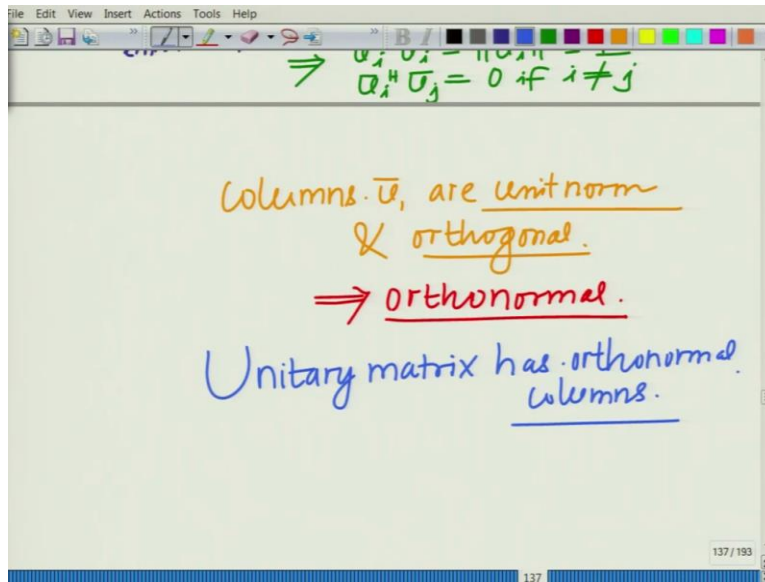 File Edit View Insert Actions Tools Help
B I
⇒
ū_i^H ū_j = 0 if i ≠ j
Columns. ū, are unit norm
& orthogonal.
⇒ orthonormal.
Unitary matrix has orthonormal
columns.
137/193
137